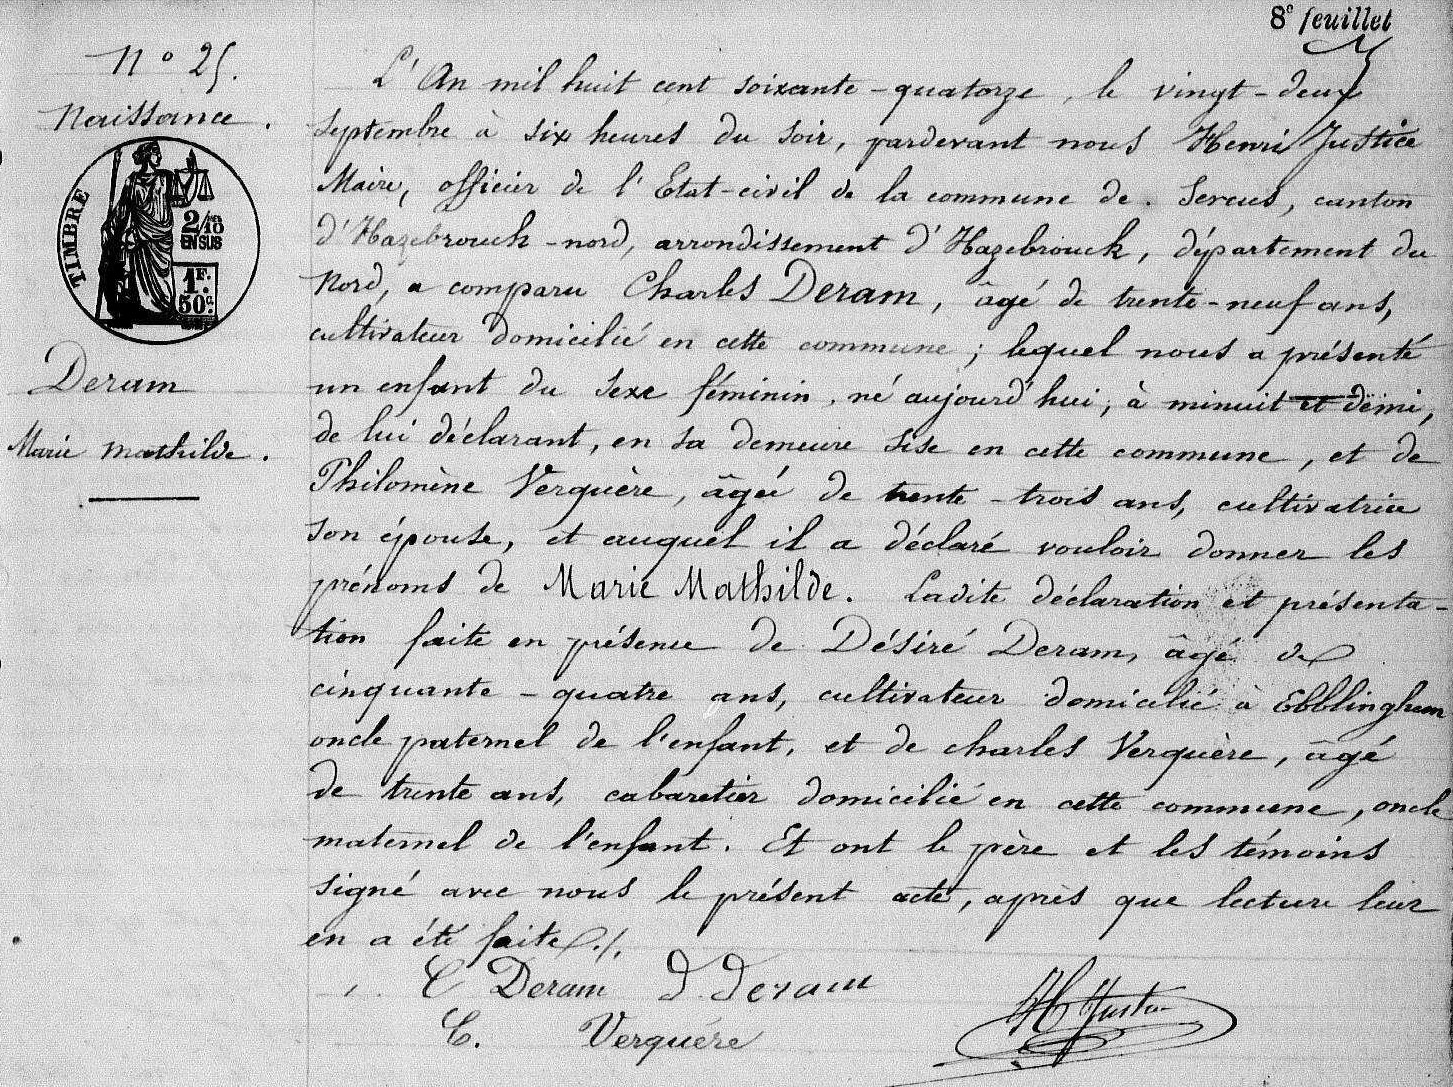 8e feuillet
N° 25.
Naissance.
TIMBRE
2/10
EN SUS
1F.
50c.
Deram
Marie Mathilde.
L'An mil huit cent soixante-quatorze, le vingt-deux
septembre à six heures du soir, pardevant nous Henri Justice
Maire, officier de l'Etat-civil de la commune de Sercus, canton
d'Hazebrouck-nord, arrondissement d'Hazebrouck, département du
Nord, a comparu Charles Deram, âgé de trente-neuf ans,
cultivateur domicilié en cette commune; lequel nous a présenté
un enfant du sexe féminin, né aujourd'hui, à minuit et demi,
de lui déclarant, en sa demeure sise en cette commune, et de
Philomène Verquère, âgée de trente-trois ans, cultivatrice
son épouse, et auquel il a déclaré vouloir donner les
prénoms de Marie Mathilde. Ladite déclaration et présenta-
tion faite en présence de Désiré Deram, âgé de
cinquante-quatre ans, cultivateur domicilié à Ebblinghem
oncle paternel de l'enfant, et de Charles Verquère, âgé
de trente ans, cabaretier domicilié en cette commune, oncle
maternel de l'enfant. Et ont le père et les témoins
signé avec nous le présent acte, après que lecture leur
en a été faite./.
C Deram D. Deram
C. Verquère
H Justice